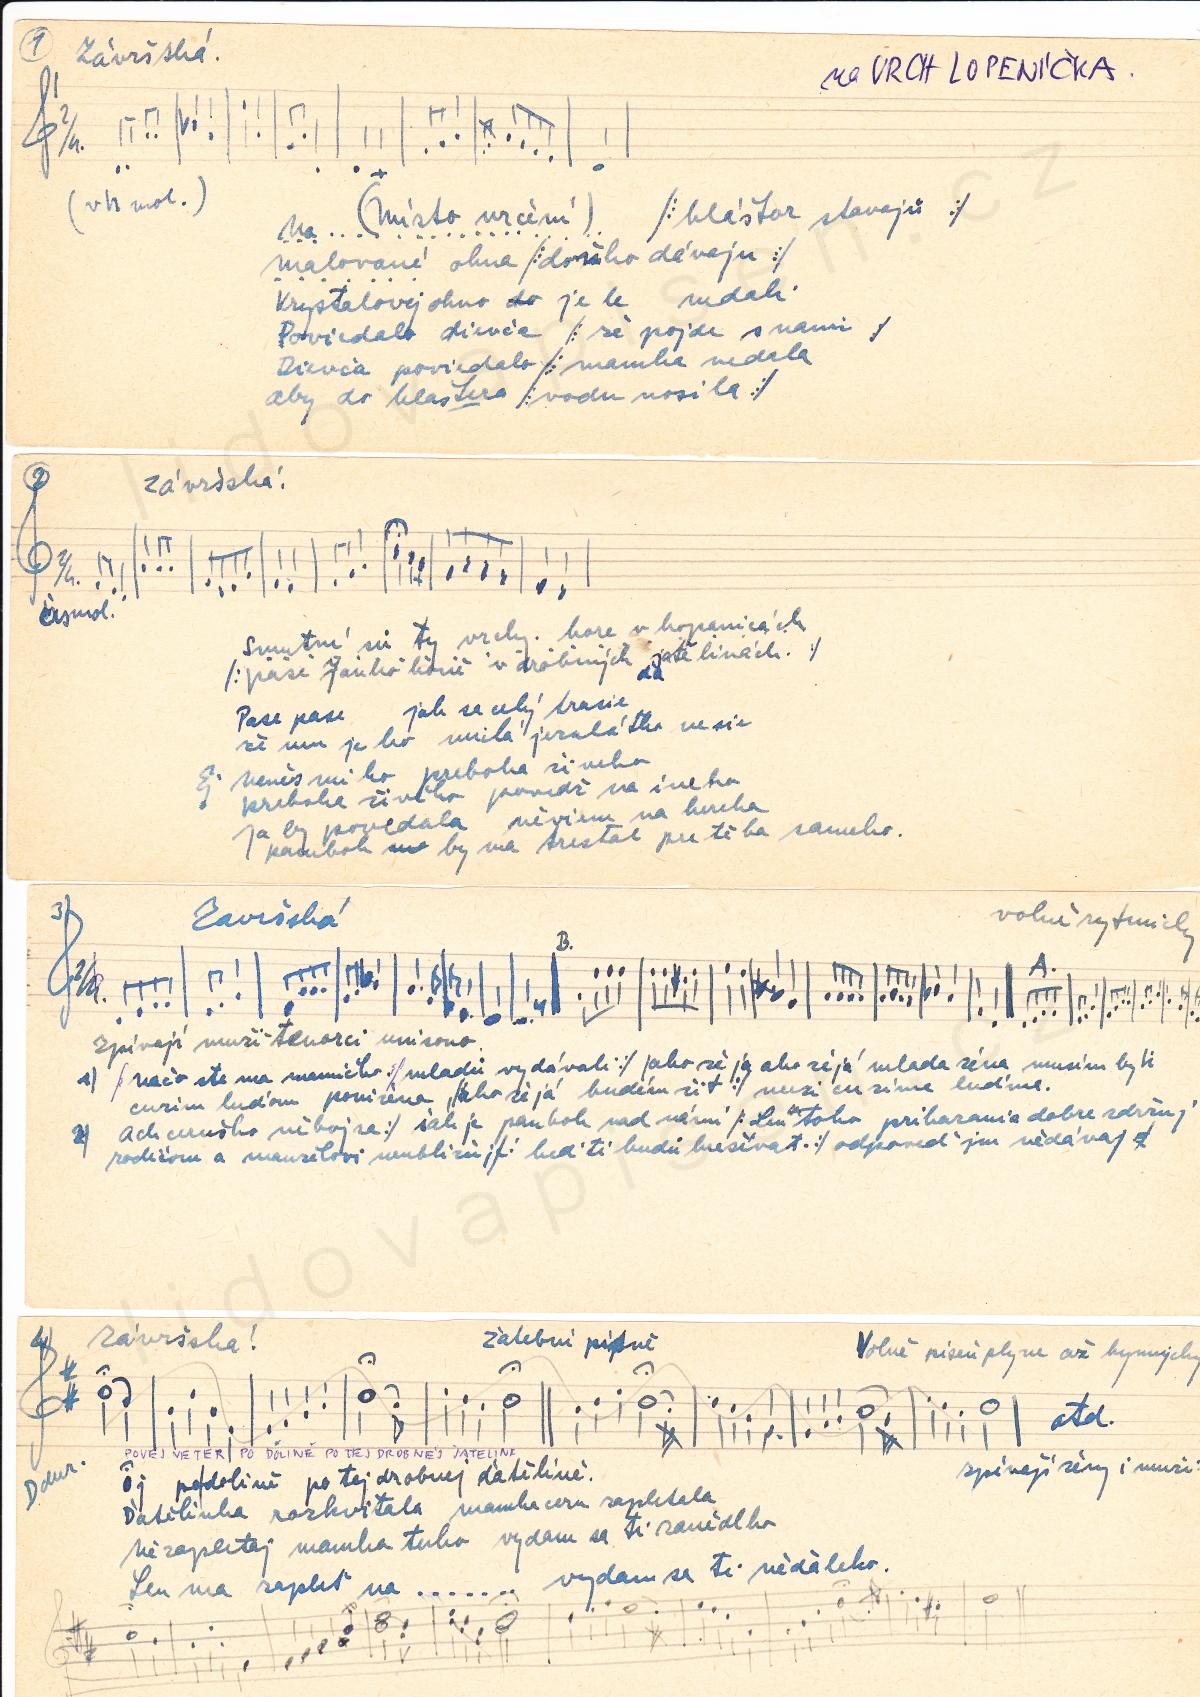 1 Závršská.
na VRCH LOPENÍČKA.
2/4.
(v h mol.)
Na ... (místo určení) /: kláštor stavajú :/
malované okna /: do něho dávaju :/
Kryštalovej okno do je le nedali
Poviedalo dievča /: že pojde s nami :/
Dievča poviedalo /: mamka nedala
aby do klaštera /: vodu nosila :/
2 Závršská!
2/4.
Cismol.
Smutné sú ty vrchy. hore v kopanicách
/: páse Janko koně v drobných ďatělinách. :/
Pase pase jak sa celý trasie
že mu je ho milá jezulátko nesie
Ej neněs mi ho preboha živeho
preboha živého povedz na iného
Ja by povedala něviem na kereho
pamboh by ma trestal pre těba sameho.
3 Završská
volně rytmicky
2/4.
B.
A.
Zpívají muži tenorci unisono.
1) /: načo ste ma mamičko :/ mladú vydávali :/ jako že já ako že já mlada žena musím byti
cuzim luďom ponižena /: jako že já budém žit :/ mezi cuzíma ludima.
2) Ach ceruško něboj sa :/ šak je pamboh nad námi /: Len toho prikazania dobre zdržuj
rodičom a manželovi neubližuj /: keď ti budú krešivat :/ odpovedí jm nědávaj :/
4 Závršska!
Zatební písně
Volně píseň plyne až hymnicky
atd.
POVEJ VETER PO DOLINĚ PO TEJ DROBNEJ ĎATELINE
D dur.
Oj po dolině po tej drobnej ďatělině.
zpívají ženy i muži
Ďatělinka rozkvitala mamka ceru zapletala
Nězapletaj mamka tuho vydam sa ti zanědlho
Len ma zaplet na ....... vydam sa ti nědaleko.
lidovapisen.cz
lidovapisen.cz